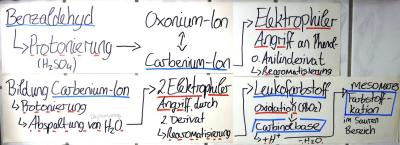 Benzaldehyd
Protonierung
(H₂SO₄)
Oxonium-Ion
Carbenium-Ion
Elektrophiler
Angriff an Phenol-
o. Anilinderivat
Rearomatisierung
Bildung Carbenium-Ion
Protonierung
Abspaltung von H₂O
2. Elektrophiler
Angriff durch
2 Derivat
Rearomatisierung
Leukofarbstoff
Oxidation (PbO₂)
Carbinolbase
+H⁺ -H₂O
MESOMERES
Farbstoff-
kation
im sauren
Bereich